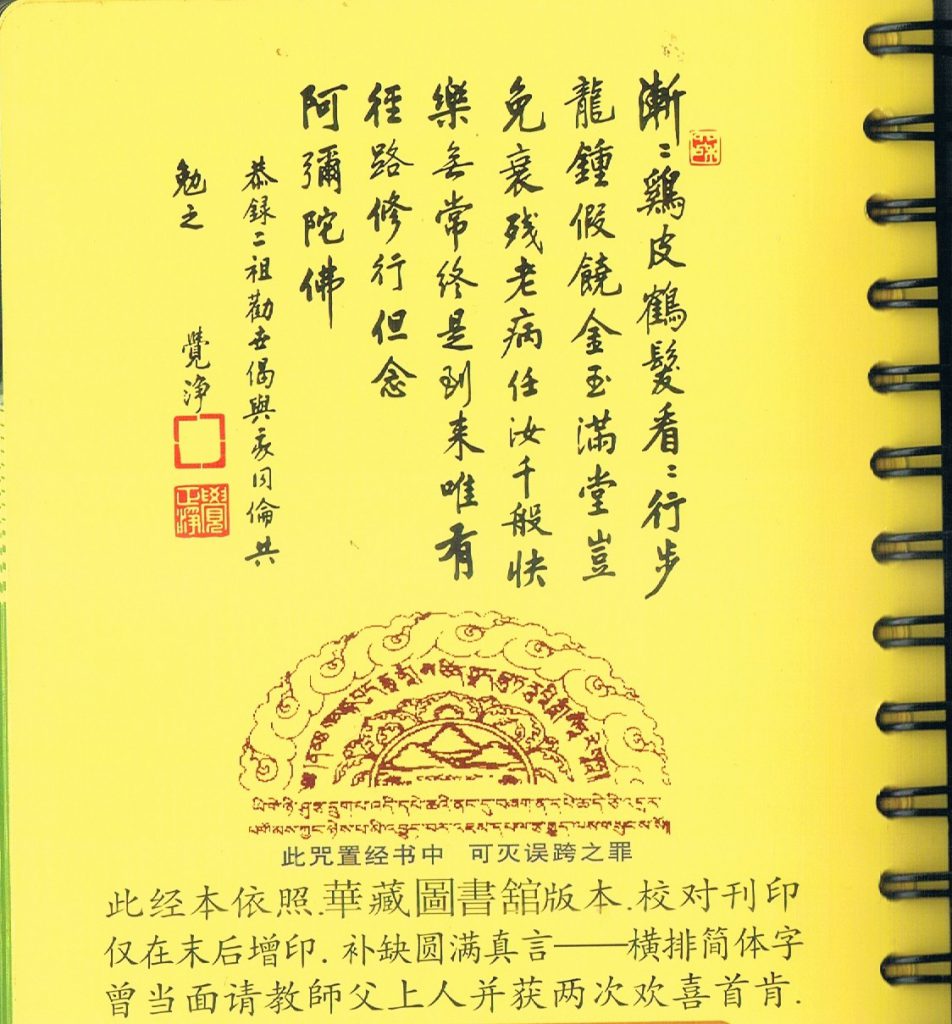 漸〻鷄皮鶴髮看〻行步
龍鍾假饒金玉滿堂豈
免衰残老病任汝千般快
樂無常終是到来唯有
徑路修行但念
阿彌陀佛
恭錄二祖勸世偈與我同倫共
勉之 覺淨
ཡི་གེ་ཉི་ཤུ་རྩ་དྲུག་པ་འདི་དཔེ་ཆའི་ནང་དུ་བཞག་ན་
此咒置经书中 可灭误跨之罪
此经本依照.華藏圖書舘版本.校对刊印
仅在末后增印.补缺圆满真言——横排简体字
曾当面请教師父上人并获两次欢喜首肯.